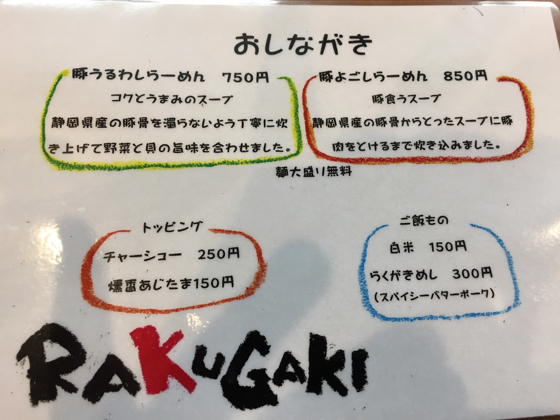 おしながき
豚うるわしらーめん 750円
コクとうまみのスープ
静岡県産の豚骨を濁らないよう丁寧に炊
き上げて野菜と貝の旨味を合わせました。
豚よごしらーめん 850円
豚食うスープ
静岡県産の豚骨からとったスープに豚
肉をとけるまで炊き込みました。
麺大盛り無料
トッピング
チャーシュー 250円
燻製あじたま150円
ご飯もの
白米 150円
らくがきめし 300円
(スパイシーバターポーク)
RAKUGAKI